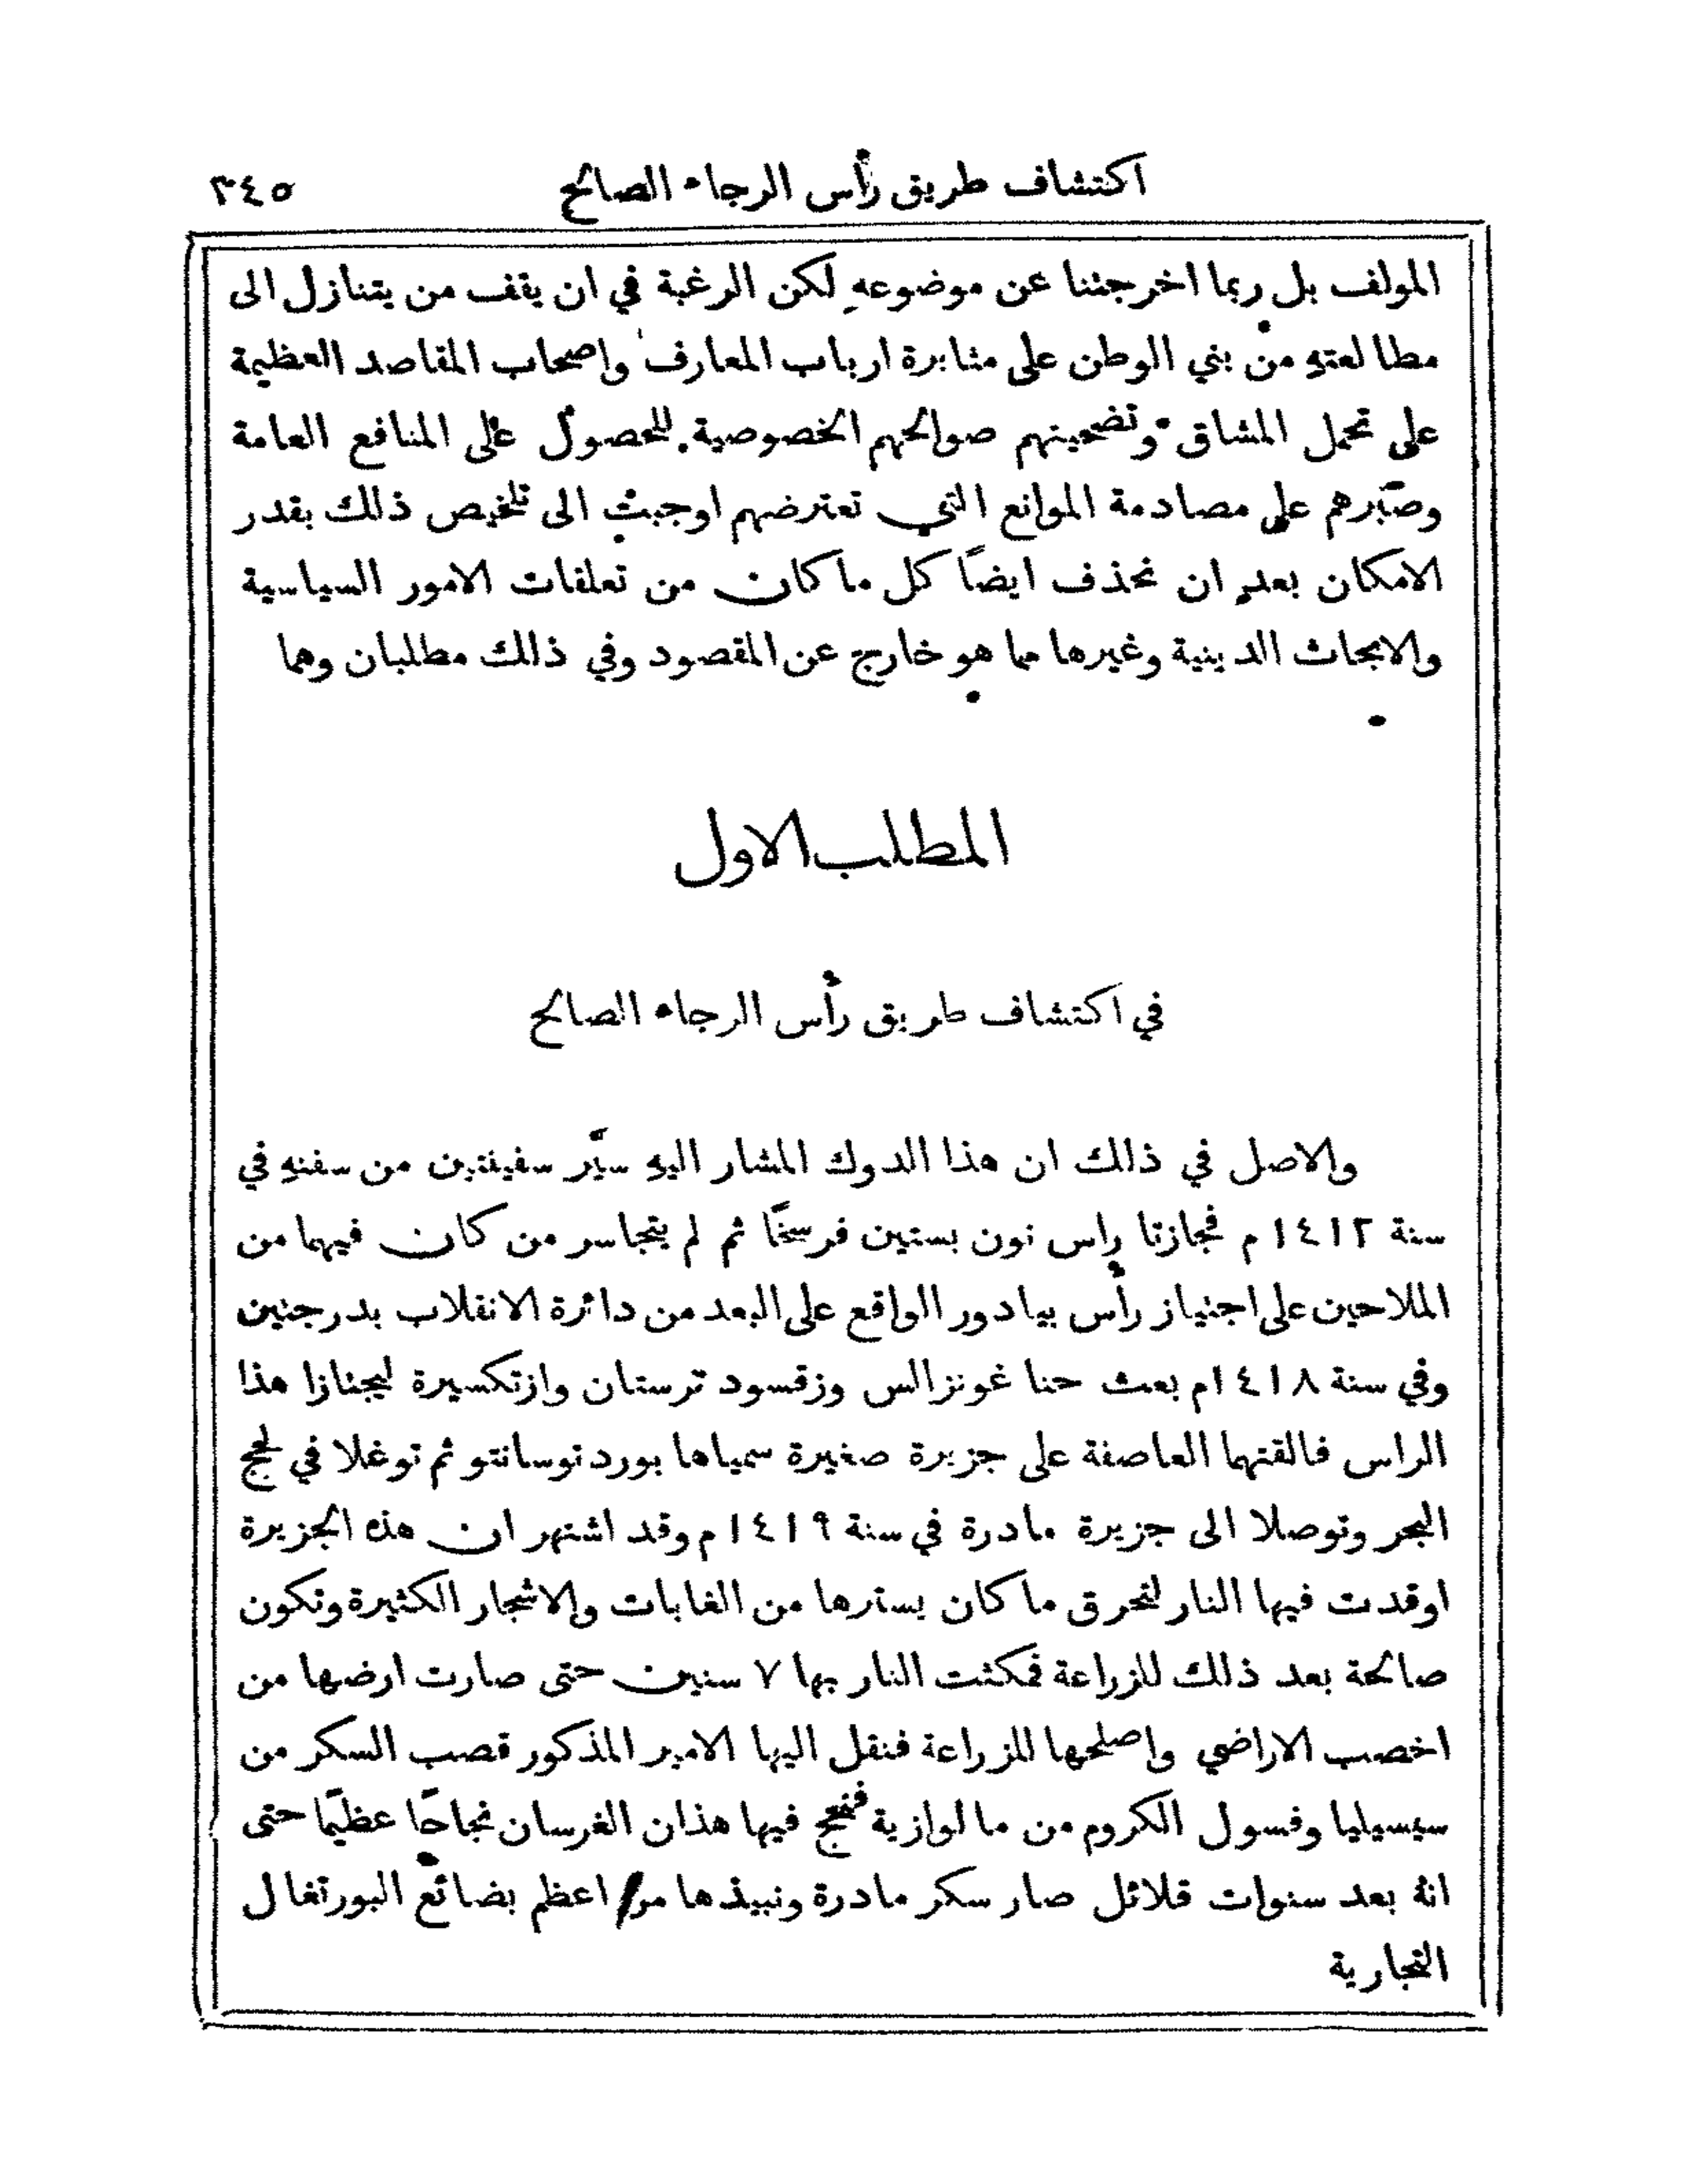 اكتشاف طريق رأس الرجاء الصالح ٣٤٥
المولف بل ربما اخرجتنا عن موضوعهِ لكن الرغبة في ان يقف من يتنازل الى
مطالعتهِ من بني الوطن على مثابرة ارباب المعارف واصحاب المقاصد العظيمة
على تحمل المشاق وتضحيتهم صوالحهم الخصوصية للحصول على المنافع العامة
وصبرهم على مصادمة الموانع التي تعترضهم اوجبت الى تلخيص ذلك بقدر
الامكان بعد ان نحذف ايضًا كل ما كان من تعلقات الامور السياسية
والابحاث الدينية وغيرها مما هو خارج عن المقصود وفي ذلك مطلبان وهما
المطلب الاول
في اكتشاف طريق رأس الرجاء الصالح
والاصل في ذلك ان هذا الدوك المشار اليهِ سيَّر سفينتين من سفنهِ في
سنة ١٤١٢ م فجازتا راس نون بستين فرسخًا ثم لم يتجاسر من كان فيهما من
الملاحين على اجتياز رأس بيادور الواقع على البعد من دائرة الانقلاب بدرجتين
وفي سنة ١٤١٨م بعث حنا غونزالس وزقسود ترستان وازتكسيرة ليجتازا هذا
الراس فالقتهما العاصفة على جزيرة صغيرة سمياها بورد توسانتو ثم توغلا في لجج
البحر وتوصلا الى جزيرة مادرة في سنة ١٤١٩ م وقد اشتهر ان هذه الجزيرة
اوقدت فيها النار لتحرق ما كان يسترها من الغابات والاشجار الكثيرة وتكون
صالحة بعد ذلك للزراعة فمكثت النار بها ٧ سنين حتى صارت ارضها من
اخصب الاراضي واصلحها للزراعة فنقل اليها الامير المذكور قصب السكر من
سيسيليا وفسول الكروم من مالوازية فنجح فيها هذان الغرسان نجاحًا عظيمًا حتى
انهُ بعد سنوات قلائل صار سكر مادرة ونبيذها من اعظم بضائع البورتغال
التجارية